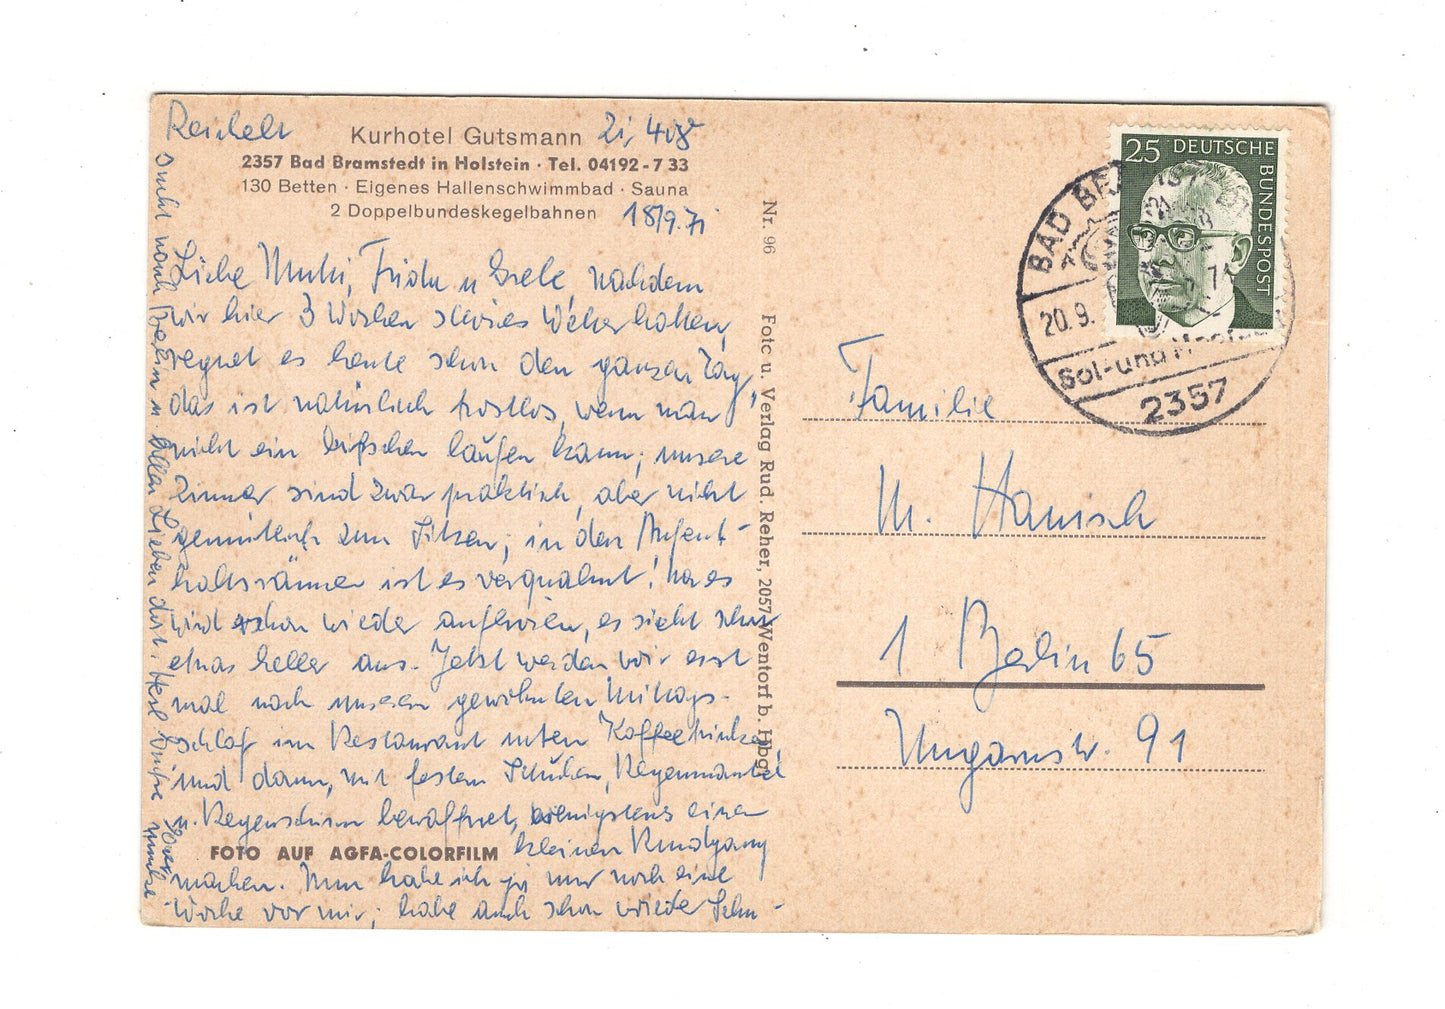 Reichelt
Kurhotel Gutsmann Zi, 408
2357 Bad Bramstedt in Holstein · Tel. 04192 - 7 33
130 Betten · Eigenes Hallenschwimmbad · Sauna
2 Doppelbundeskegelbahnen 18/9. 71
Liebe Mutti, Frieda u. nachdem
wir hier 3 Wochen schönes Wetter hatten,
regnet es heute schon den ganzen Tag,
das ist natürlich trostlos, wenn man
nicht ein bißchen laufen kann; unsere
Zimmer sind zwar praktisch, aber nicht
gemütlich zum Sitzen; in den Aufent-
haltsräumen ist es verqualmt!
wird schon wieder aufhören, es sieht schon
etwas heller aus. Jetzt werden wir erst
mal nach unserem gewohnten Mittags-
schlaf im Restaurant unten Kaffee trinken
und dann, mit festen Schuhen, Regenmantel
u. Regenschirm bewaffnet, wenigstens einen
kleinen Rundgang
FOTO AUF AGFA-COLORFILM
machen. Nun habe ich ja nur noch eine
Woche vor mir; habe auch schon wieder Sehn-
sucht nach Berlin u. allen Lieben dort. Herzl. Grüße
Nr. 96 Foto u. Verlag Rud. Reher, 2057 Wentorf b. Hbg.
25 DEUTSCHE
BUNDESPOST
BAD BRAMSTEDT
20. 9. 71
Sol- und Moor
2357
Familie
M. Hanisch
1 Berlin 65
Ungarnstr. 91